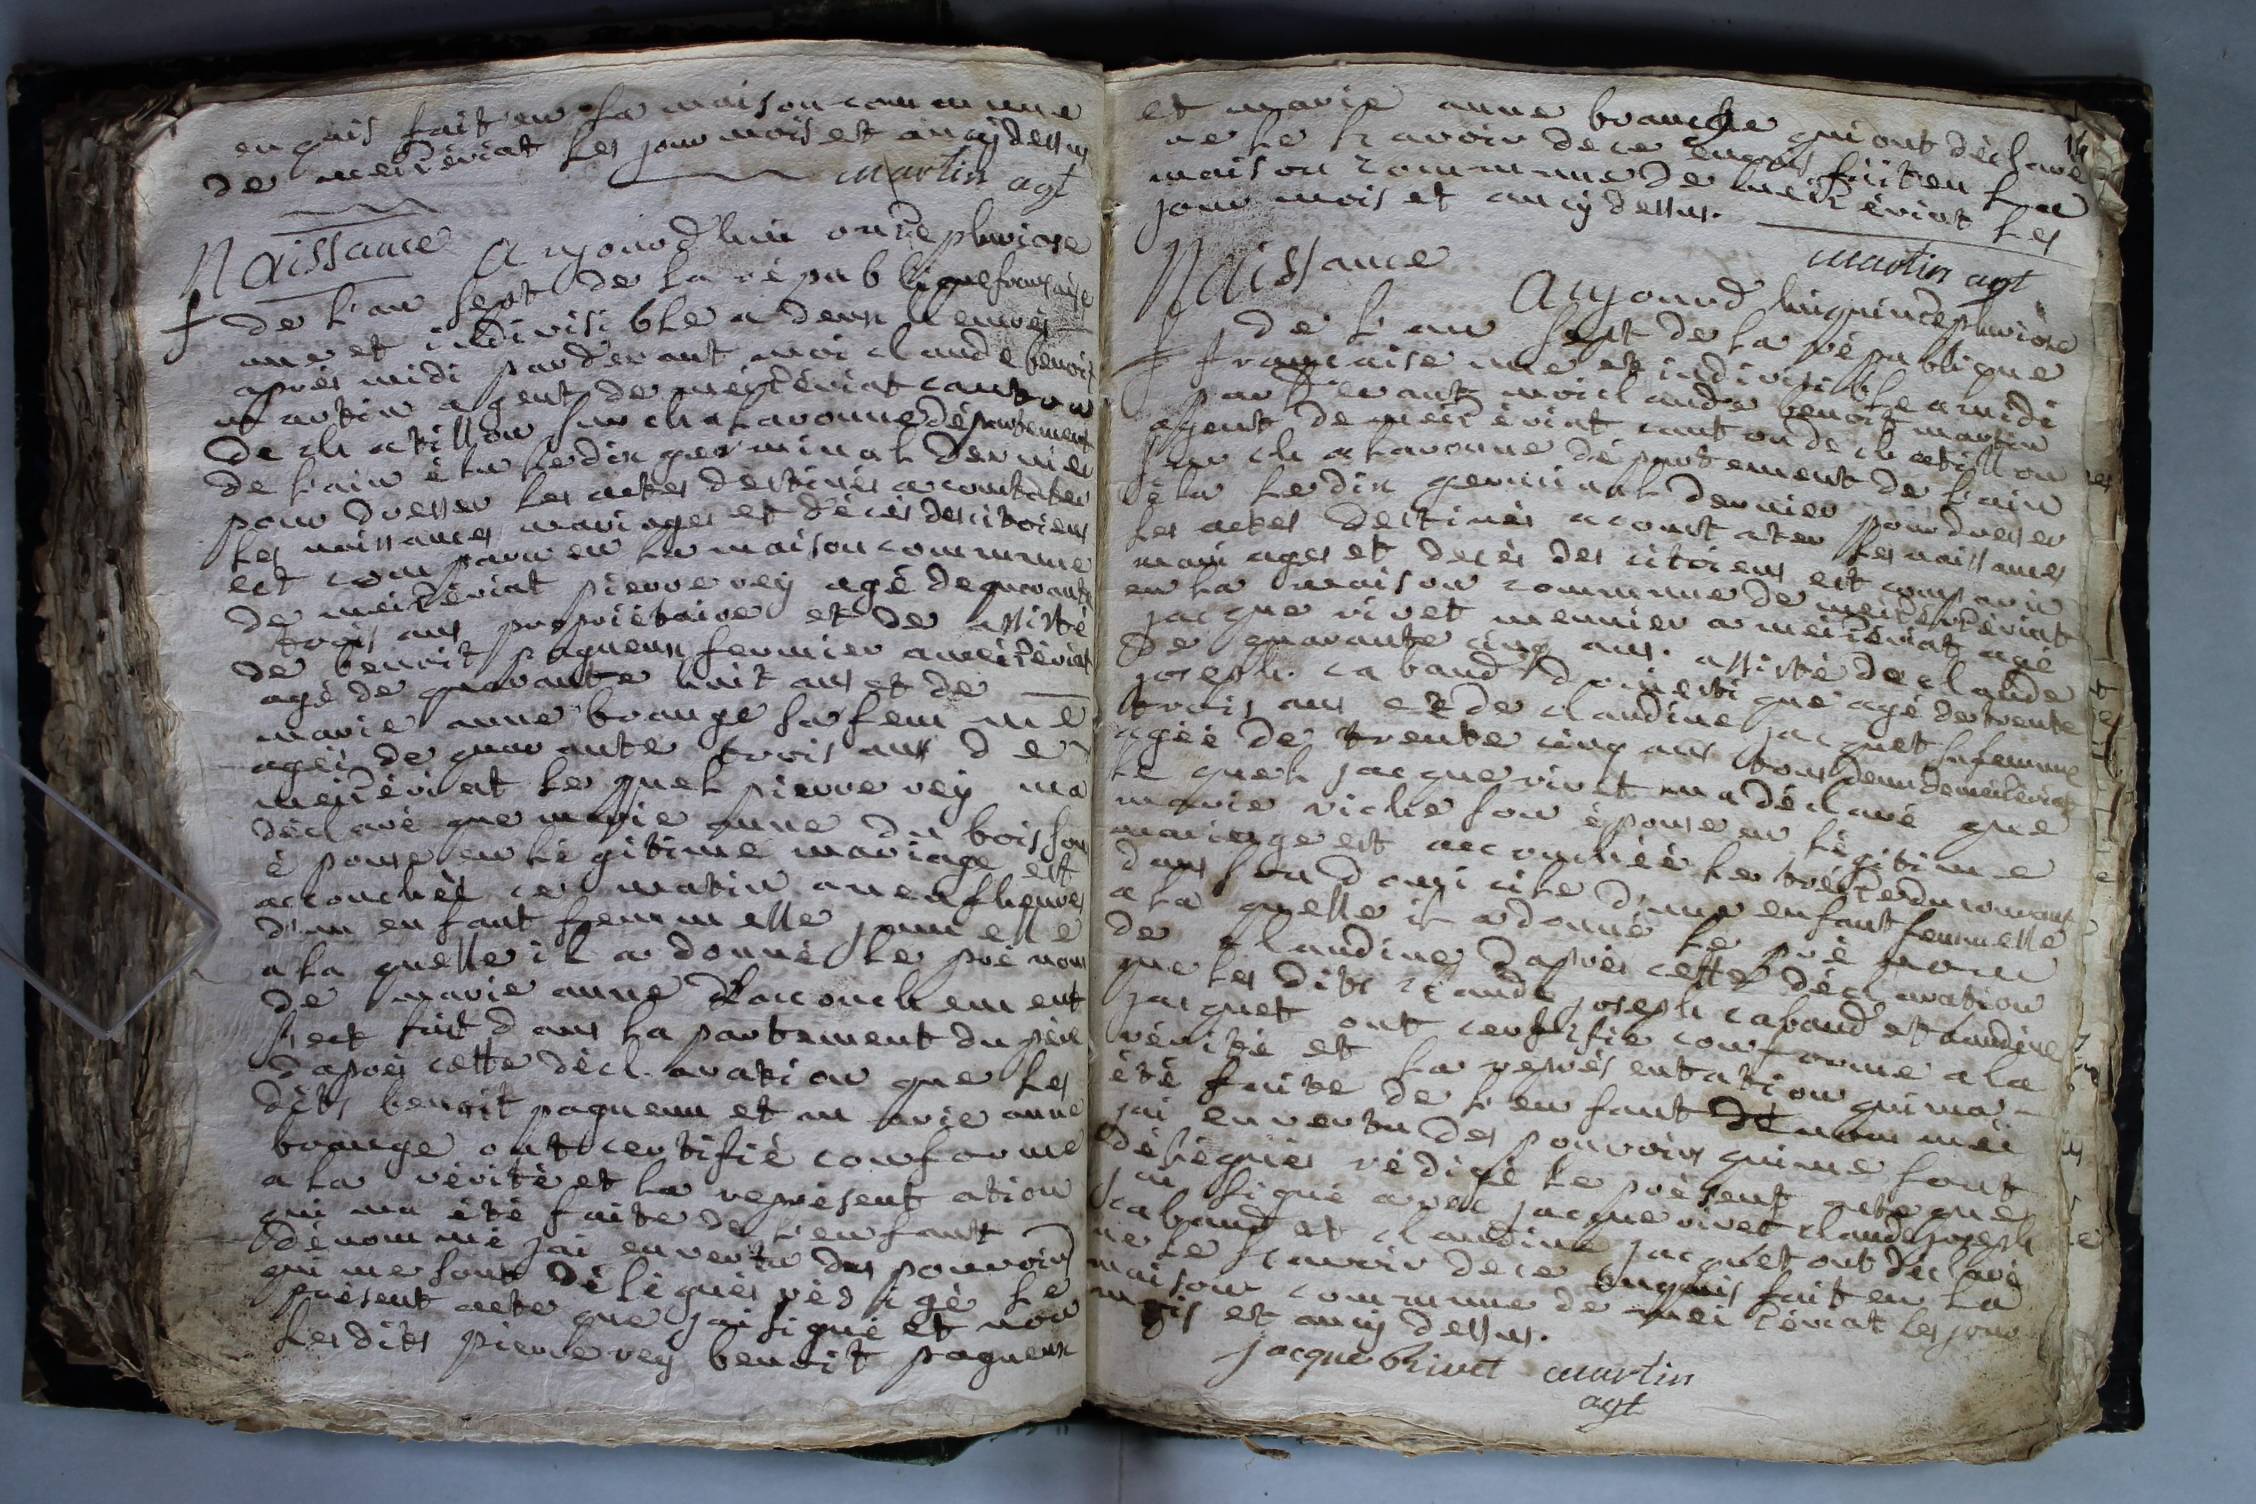 enquis fait en la maison commune
de meizériat les jour mois et an cÿ dessus
martin agt
Naissance Aujourd'hui onze pluviose
de l'an sept de la république française
une et indivisible a deux heures
après midi pardevant moi claude benoit
martin agent de meizériat canton
de chatillon sur chalaronne département
de l'ain élu le dix germinal dernier
pour dresser les actes destinés a constater
les naissances mariages et décès des citoiens
est comparu en la maison commune
de meizériat pierre rey agé de quarante
trois ans propriétaire et de assisté
de benoit paquenn fermier a meizériat
agé de quarante huit ans et de
marie anne brange sa femme
agéé de quarante trois ans de
meizériat lequel pierre rey ma
déclaré que marie anne du bois son
épouse en légitime mariage est
accouchéé ce matin a neuf heures
d'un enfant femmelle jumelle
a la quelle il a donné le prénom
de marie anne L'accouchement
s'est fait dans la partement du père
d'aprés cette déclaration que les
dits benoit paquenn et marie anne
brange ont certifié conforme
a la vérité et la représentation
qui ma été faite de l'enfant
dénommé jai en vertu des pouvoirs
qui me sont délégués rédigé le
présent acte que jai signé et non
lesdits pierre rey benoit paquenn
14
et marie anne branche qui ont déclaré
ne le scavoir de ce enquis fait en la
maison commune de meizériat les
jour mois et an cÿ dessus.
martin agt
Naissance Aujourd'hui quinze pluviose
de l'an sept de la république
française une et indivisible a midi
pardevant moi claude benoit martin
agent de meizériat canton de chatillon
sur chalaronne département de l'ain
élu le dix germinal dernier pour dresser
les actes destinés a constater les naissances
mariages et decès des citoiens est comparu
en la maison commune de meizériat
jacque rivet meunier a meizériat agé
de quarante cinq ans. assisté de claude
joseph cabaud domestique agé de trente
trois ans et de claudine jacquet sa femme
agéé de trente cinq ans tous deux de meizériat
le quel jacque rivet ma déclaré que
marie riche son épouse en légitime
mariage est accouchéé le treize du courant
dans son domicile d'une enfant femmelle
a la quelle il a donné le pré nom
de claudine d'après cette déclaration
que les dits claude joseph cabaud et claudine
jacquet ont certifié conforme a la
vérité et la représentation qui ma
été faite de l'enfant dénommé
jai en vertu des pouvoirs qui me sont
délégués rédigé le présent acte que
jai signé avec jacque rivet claude joseph
cabaud et claudine jacquet ont déclaré
ne le scavoir de ce enquis fait en la
maison commune de meizériat les jour
mois et an cÿ dessus.
jacque Rivet martin
agt